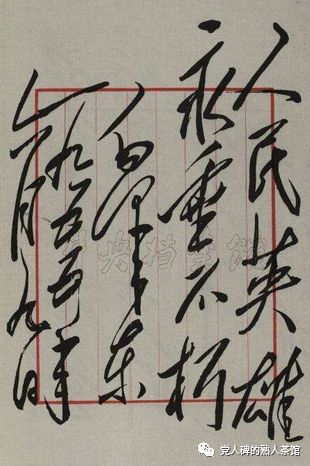 人民英雄
永垂不朽
毛泽东
一九五五年
六月九日
央档案馆
党人碑的熟人茶馆